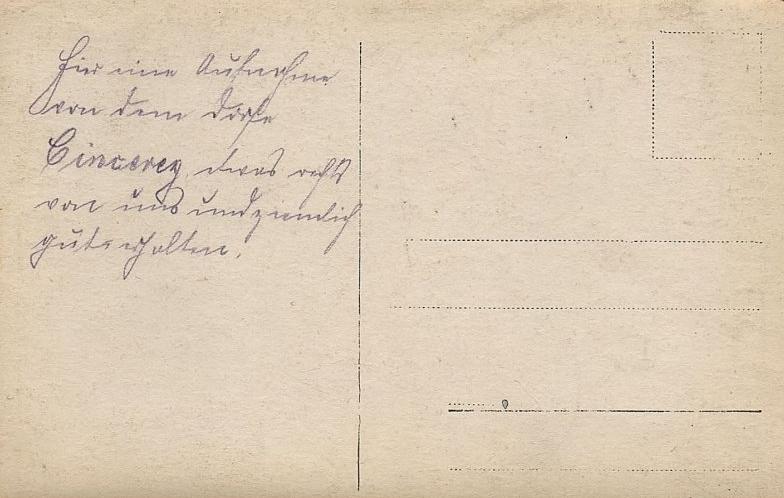 Hier eine Aufnahme
von dem Dorfe
Ciercey, etwas rechts
von uns und ziemlich
gut erhalten.